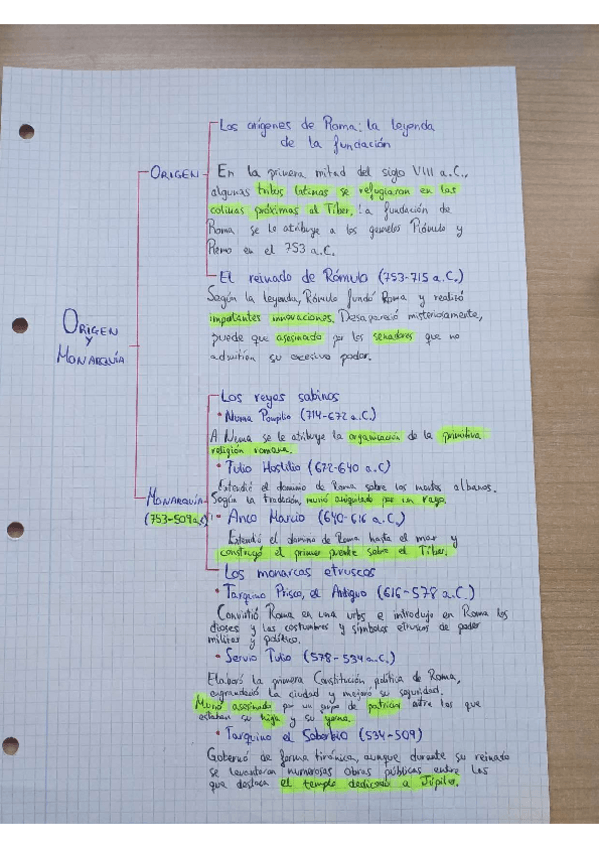 Los orígenes de Roma: la leyenda
de la fundación
ORIGEN
En la primera mitad del siglo VIII a.C.,
algunas tribus latinas se refugiaron en las
colinas próximas al Tíber. La fundación de
Roma se le atribuye a los gemelos Rómulo y
Remo en el 753 a.C.
El reinado de Rómulo (753-715 a.C.)
Según la leyenda, Rómulo fundó Roma y realizó
importantes innovaciones. Desapareció misteriosamente,
puede que asesinado por los senadores que no
admitían su excesivo poder.
ORIGEN
Y
MONARQUÍA
Los reyes sabinos
• Numa Pompilio (714-672 a.C.)
A Numa se le atribuye la organización de la primitiva
religión romana.
• Tulio Hostilio (672-640 a.C)
Extendió el dominio de Roma sobre los montes albanos.
MONARQUÍA
Según la tradición, murió aniquilado por un rayo.
(753-509 a.C)
• Anco Marcio (640-616 a.C.)
Extendió el dominio de Roma hasta el mar y
construyó el primer puente sobre el Tíber.
Los monarcas etruscos
• Tarquino Prisco, el Antiguo (616-578 a.C.)
Convirtió Roma en una urbs e introdujo en Roma los
dioses y las costumbres y símbolos etruscos de poder
militar y político.
• Servio Tulio (578-534 a.C.)
Elaboró la primera Constitución política de Roma,
engrandeció la ciudad y mejoró su seguridad.
Murió asesinado por un grupo de patricios entre los que
estaban su hija y su yerno.
• Tarquino el Soberbio (534-509)
Gobernó de forma tiránica, aunque durante su reinado
se levantaron numerosas obras públicas entre las
que destaca el templo dedicado a Júpiter.